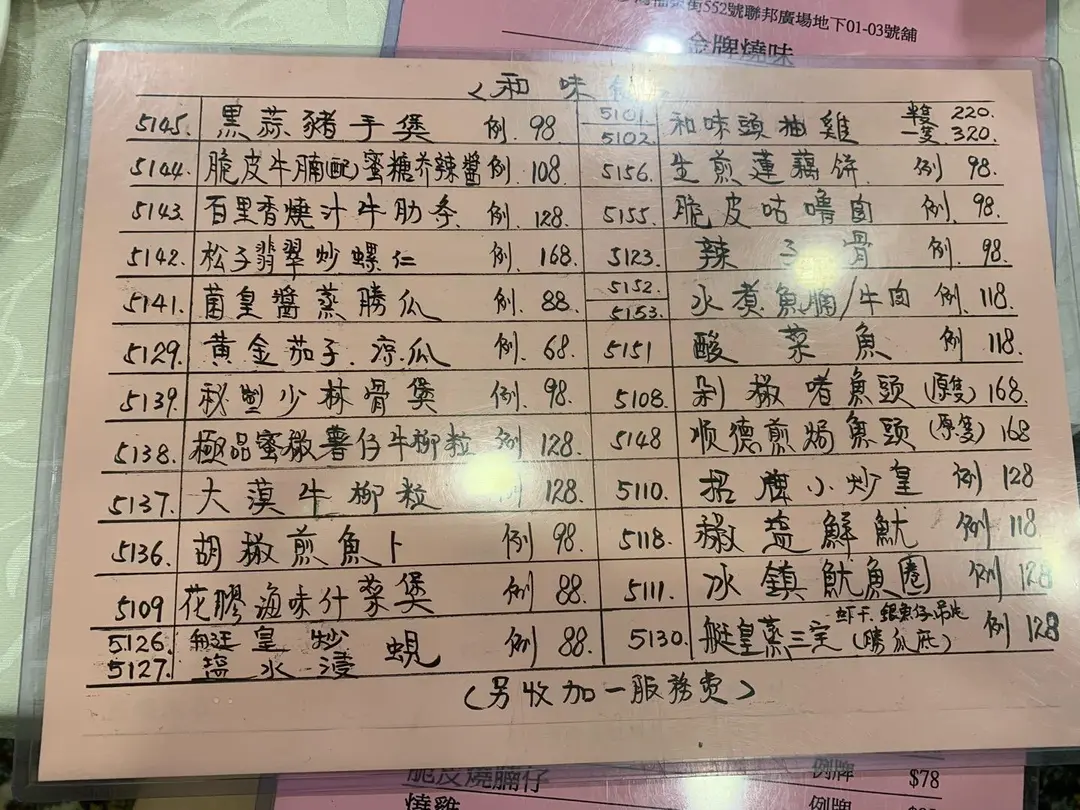 街552號聯邦廣場地下01-03號舖
金牌燒味
和味
5145. 黑蒜豬手煲 例. 98.
5144. 脆皮牛腩(配)蜜糖芥辣醬 例. 108.
5143. 百里香燒汁牛肋条 例. 128.
5142. 松子翡翠炒螺仁 例. 168.
5141. 菌皇醬蒸勝瓜 例. 88.
5129. 黄金茄子.凉瓜 例. 68.
5139. 秘製少林骨煲 例. 98.
5138. 極品蜜椒薯仔牛柳粒 例 128.
5137. 大漠牛柳粒 例 128.
5136. 胡椒煎魚卜 例 98.
5109 花膠海味什菜煲 例 88.
5126. 艇皇炒蜆 例 88.
5127. 盐水浸
5101. 和味頭抽雞 半隻 220.
5102. 一隻 320.
5156. 生煎蓮藕饼 例 98.
5155. 脆皮咕嚕肉 例. 98.
5123. 辣子骨 例. 98.
5152. 水煮魚腩/牛肉 例. 118.
5153.
5151 酸菜魚 例 118.
5108. 剁椒啫魚頭(原隻) 168.
5148 顺德煎焗魚頭(原隻) 168
5110. 招牌小炒皇 例 128
5118. 椒盐鮮魷 例 118
5111. 冰鎮魷魚圈 例 128
5130. 艇皇蒸三宝 虾干.銀魚仔. (勝瓜底) 例 128
(另收加一服務費)
脆皮燒腩仔 例牌 $78
燒雞 例牌